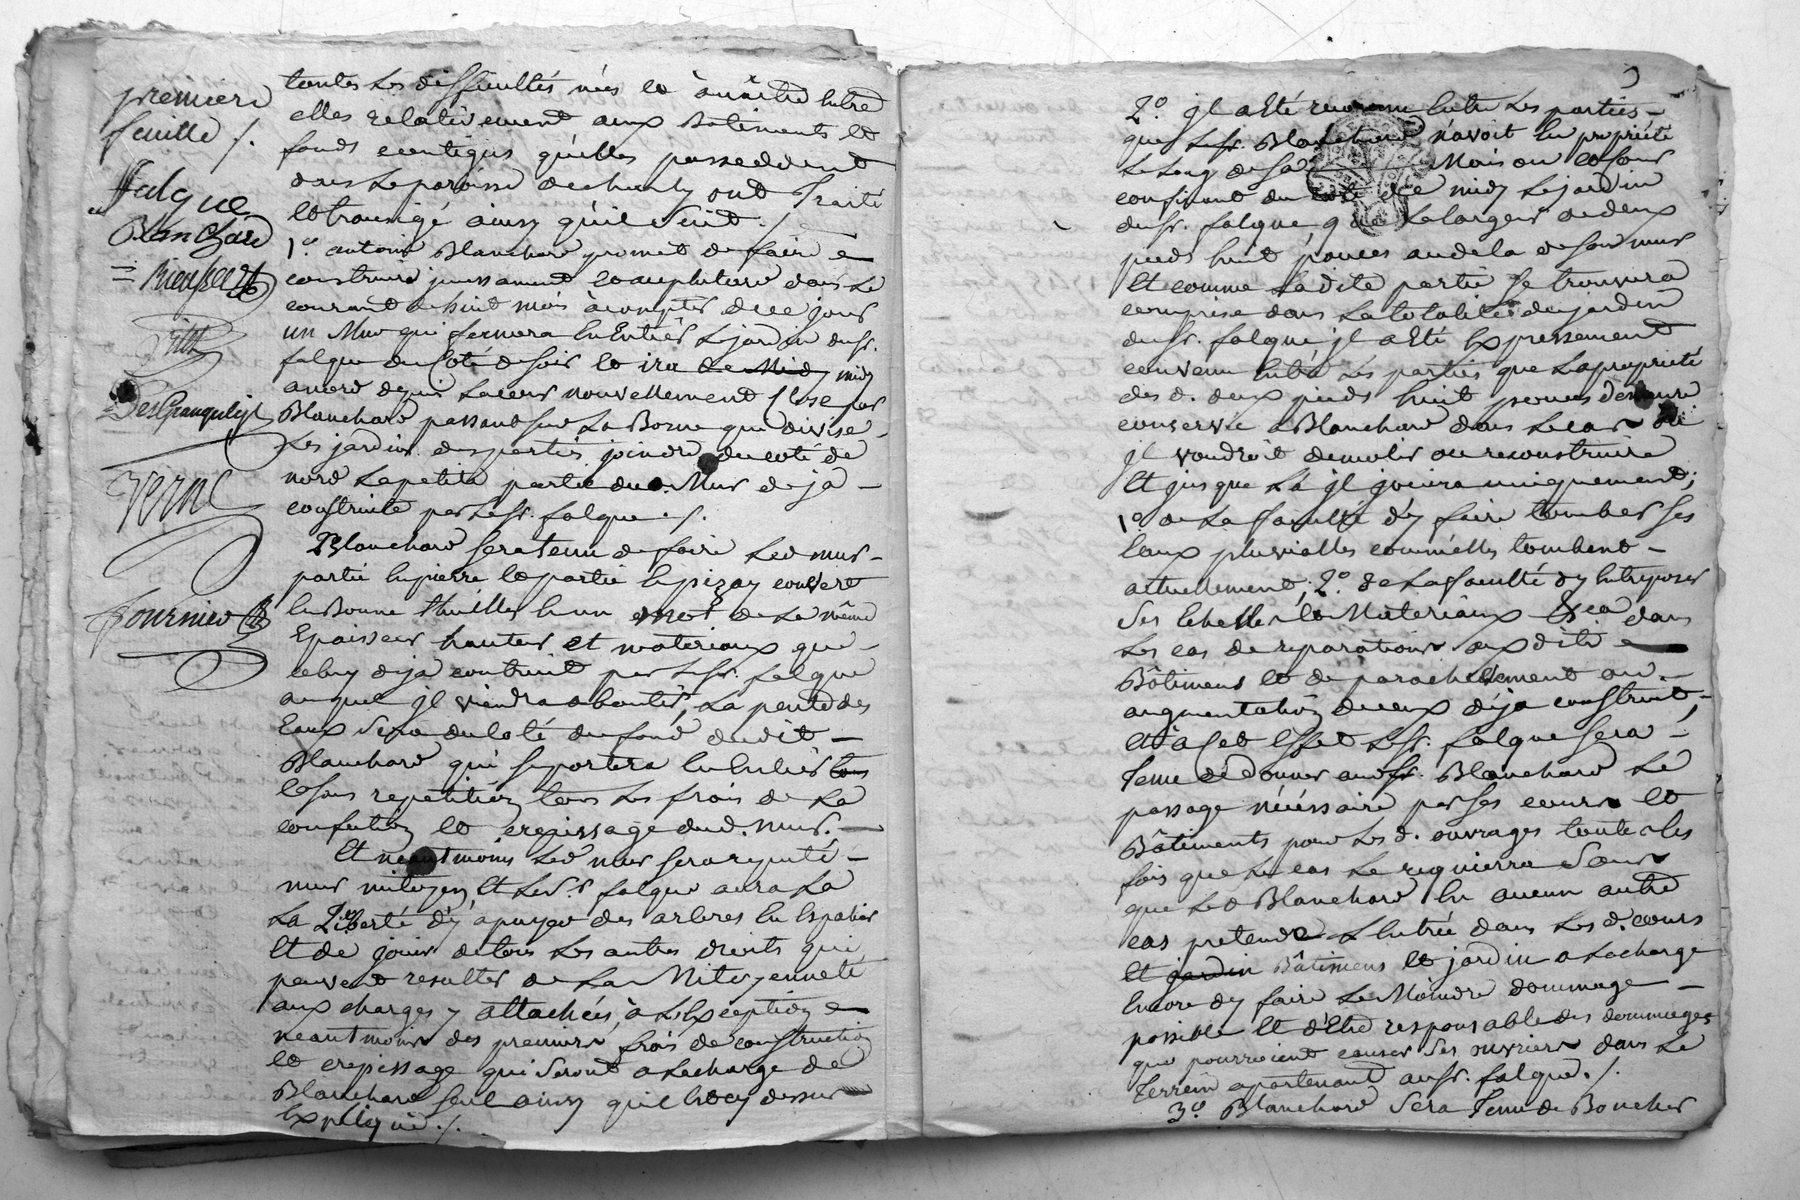 première
feuille /.
falque
Blanchard
Desgranges
Verne
fournier
toutes les difficultés nées et à naître Entre
elles relativement aux Batiments et
fonds contigus qu'elles possedent
dans la paroisse de ont traité
et transigé ainsy qu'il suit. /
1.º antoine Blanchard promet de faire
construire incessament et au plutard dans le
courant de huit mois à compter de ce jour
un Mur qui fermera En Entier le jardin du sr.
falque du Coté de soir et ira de Midy midy
au nord depuis la cour nouvellement Close par
Blanchard passant sur la Borne qui divise
les jardins des parties joindre du coté de
nord la petite partie du d. Mur deja
construite par le sr. falque ./.
Blanchard sera tenu de faire led mur
partie En pierre et partie En pizay couvert
En Bonne thuilles En un mot de la même
Epaisseur hauteur et materiaux que
celuy deja contruit par le sr. falque
auquel jl viendra aboutir, la pente des
Eaux sera du coté du fond dudit
Blanchard qui suportera En Entier tous
et sans repetition tous les frais de la
confection et crepissage dud. mur.
Et neantmoins led mur sera reputé
mur mitoyen Et led. sr falque aura la
la Liberté d'y apuyer des arbres En Espalier
Et de jouir de tous les autres droits qui
peuvent resulter de la Mitoyenneté
aux charges y attachées, à l'Exception
neantmoins des premiers frais de construction
et crepissage qui seront à la charge de
Blanchard seul ainsy qu'il Est cy dessus
Expliqué ./.
2.º jl a Eté reconnu Entre les parties
que le sr. Blanchard n'avoit En propriété
le long de sa Maison et cour
confinant du coté de midy le jardin
du sr. falque, que la largeur de deux
pieds huit pouces audela de son mur
Et comme ladite partie se trouvera
comprise dans la totalité du jardin
du sr. falque jl a Eté Expressement
convenu Entre les parties que la propriété
des d. deux pieds huit pouces demeure
conservée a Blanchard dans le cas où
jl voudroit demolir ou reconstruire
Et jusque là jl jouira uniquement;
1º de la faculté d'y faire tomber ses
Eaux pluvialles comm'elles tombent
actuellement; 2.º de la faculté d'y Entreposer
ses Echelles et Materiaux &ca dans
les cas de reparations auxdits
Bâtimens et de parachevement ou
augmentation de ceux déja construit;
Et à cet Effet le sr. falque sera
tenu de donner aud sr. Blanchard le
passage nécéssaire par ses cours et
Bâtiments pour les d. ouvrages toutes les
fois que le cas le requierra sans
que led Blanchard En aucun autre
cas pretende L'Entrée dans les d. cours
Et jardin Bâtimens et jardin a la charge
Encore d'y faire le Moindre dommage
possible et d'Etre responsable des dommages
que pourroient causer ses ouvriers dans le
terrein apartenant au sr. falque ./.
3.º Blanchard sera tenu de Boucher